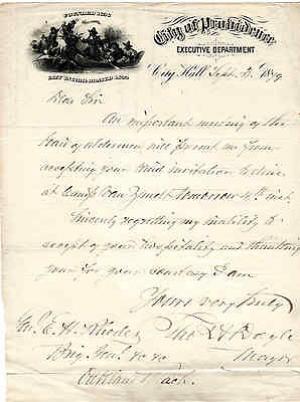 City of Providence
EXECUTIVE DEPARTMENT
City Hall Sept. 3, 1879
Dear Sir
An important meeting of the
board of aldermen will prevent me from
accepting your kind invitation to dine
at Camp Van Zandt tomorrow 4th inst.
Sincerely regretting my inability to
accept of your hospitality and thanking
you for your courtesy I am
Yours very truly
Gen. E. H. Rhodes Tho A Doyle
Brig. Genl. Mayor